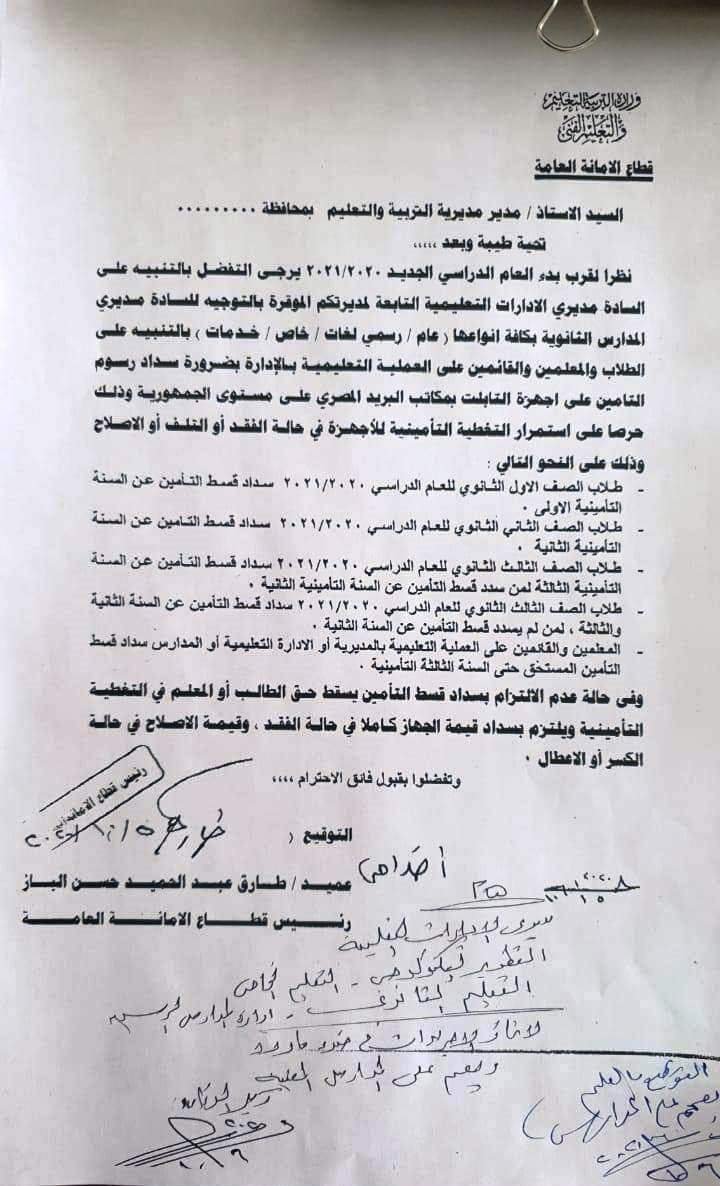 وزارة التربية والتعليم
والتعليم الفني
قطاع الامانة العامة
السيد الاستاذ / مدير مديرية التربية والتعليم بمحافظة .........
تحية طيبة وبعد ,,,,,
نظرا لقرب بدء العام الدراسي الجديد ٢٠٢١/٢٠٢٠ يرجى التفضل بالتنبيه على
السادة مديري الادارات التعليمية التابعة لمديرتكم الموقرة بالتوجيه للسادة مديري
المدارس الثانوية بكافة انواعها ( عام / رسمي لغات / خاص / خدمات ) بالتنبيه على
الطلاب والمعلمين والقائمين على العملية التعليمية بالإدارة بضرورة سداد رسوم
التامين على اجهزة التابلت بمكاتب البريد المصري على مستوى الجمهورية وذلك
حرصا على استمرار التغطية التأمينية للأجهزة في حالة الفقد أو التلف أو الاصلاح
وذلك على النحو التالي :
- طلاب الصف الاول الثانوي للعام الدراسي ٢٠٢١/٢٠٢٠ سداد قسط التأمين عن السنة
التأمينية الاولى .
- طلاب الصف الثاني الثانوي للعام الدراسي ٢٠٢١/٢٠٢٠ سداد قسط التامين عن السنة
التأمينية الثانية .
- طلاب الصف الثالث الثانوي للعام الدراسي ٢٠٢١/٢٠٢٠ سداد قسط التأمين عن السنة
التأمينية الثالثة لمن سدد قسط التأمين عن السنة التأمينية الثانية .
- طلاب الصف الثالث الثانوي للعام الدراسي ٢٠٢١/٢٠٢٠ سداد قسط التأمين عن السنة الثانية
والثالثة ، لمن لم يسدد قسط التأمين عن السنة الثانية .
- المعلمين والقائمين على العملية التعليمية بالمديرية أو الادارة التعليمية أو المدارس سداد قسط
التأمين المستحق حتى السنة الثالثة التأمينية .
وفى حالة عدم الالتزام بسداد قسط التأمين يسقط حق الطالب أو المعلم في التغطية
التأمينية ويلتزم بسداد قيمة الجهاز كاملا في حالة الفقد ، وقيمة الاصلاح في حالة
الكسر أو الاعطال .
وتفضلوا بقبول فائق الاحترام ,,,,
رئيس قطاع الامانة
التوقيع (
عميد / طارق عبد الحميد حسن الباز
رئيس قطاع الامانة العامة
التعليم الخاص
التعليم الثانوي - ادارة المدارس الرسمية